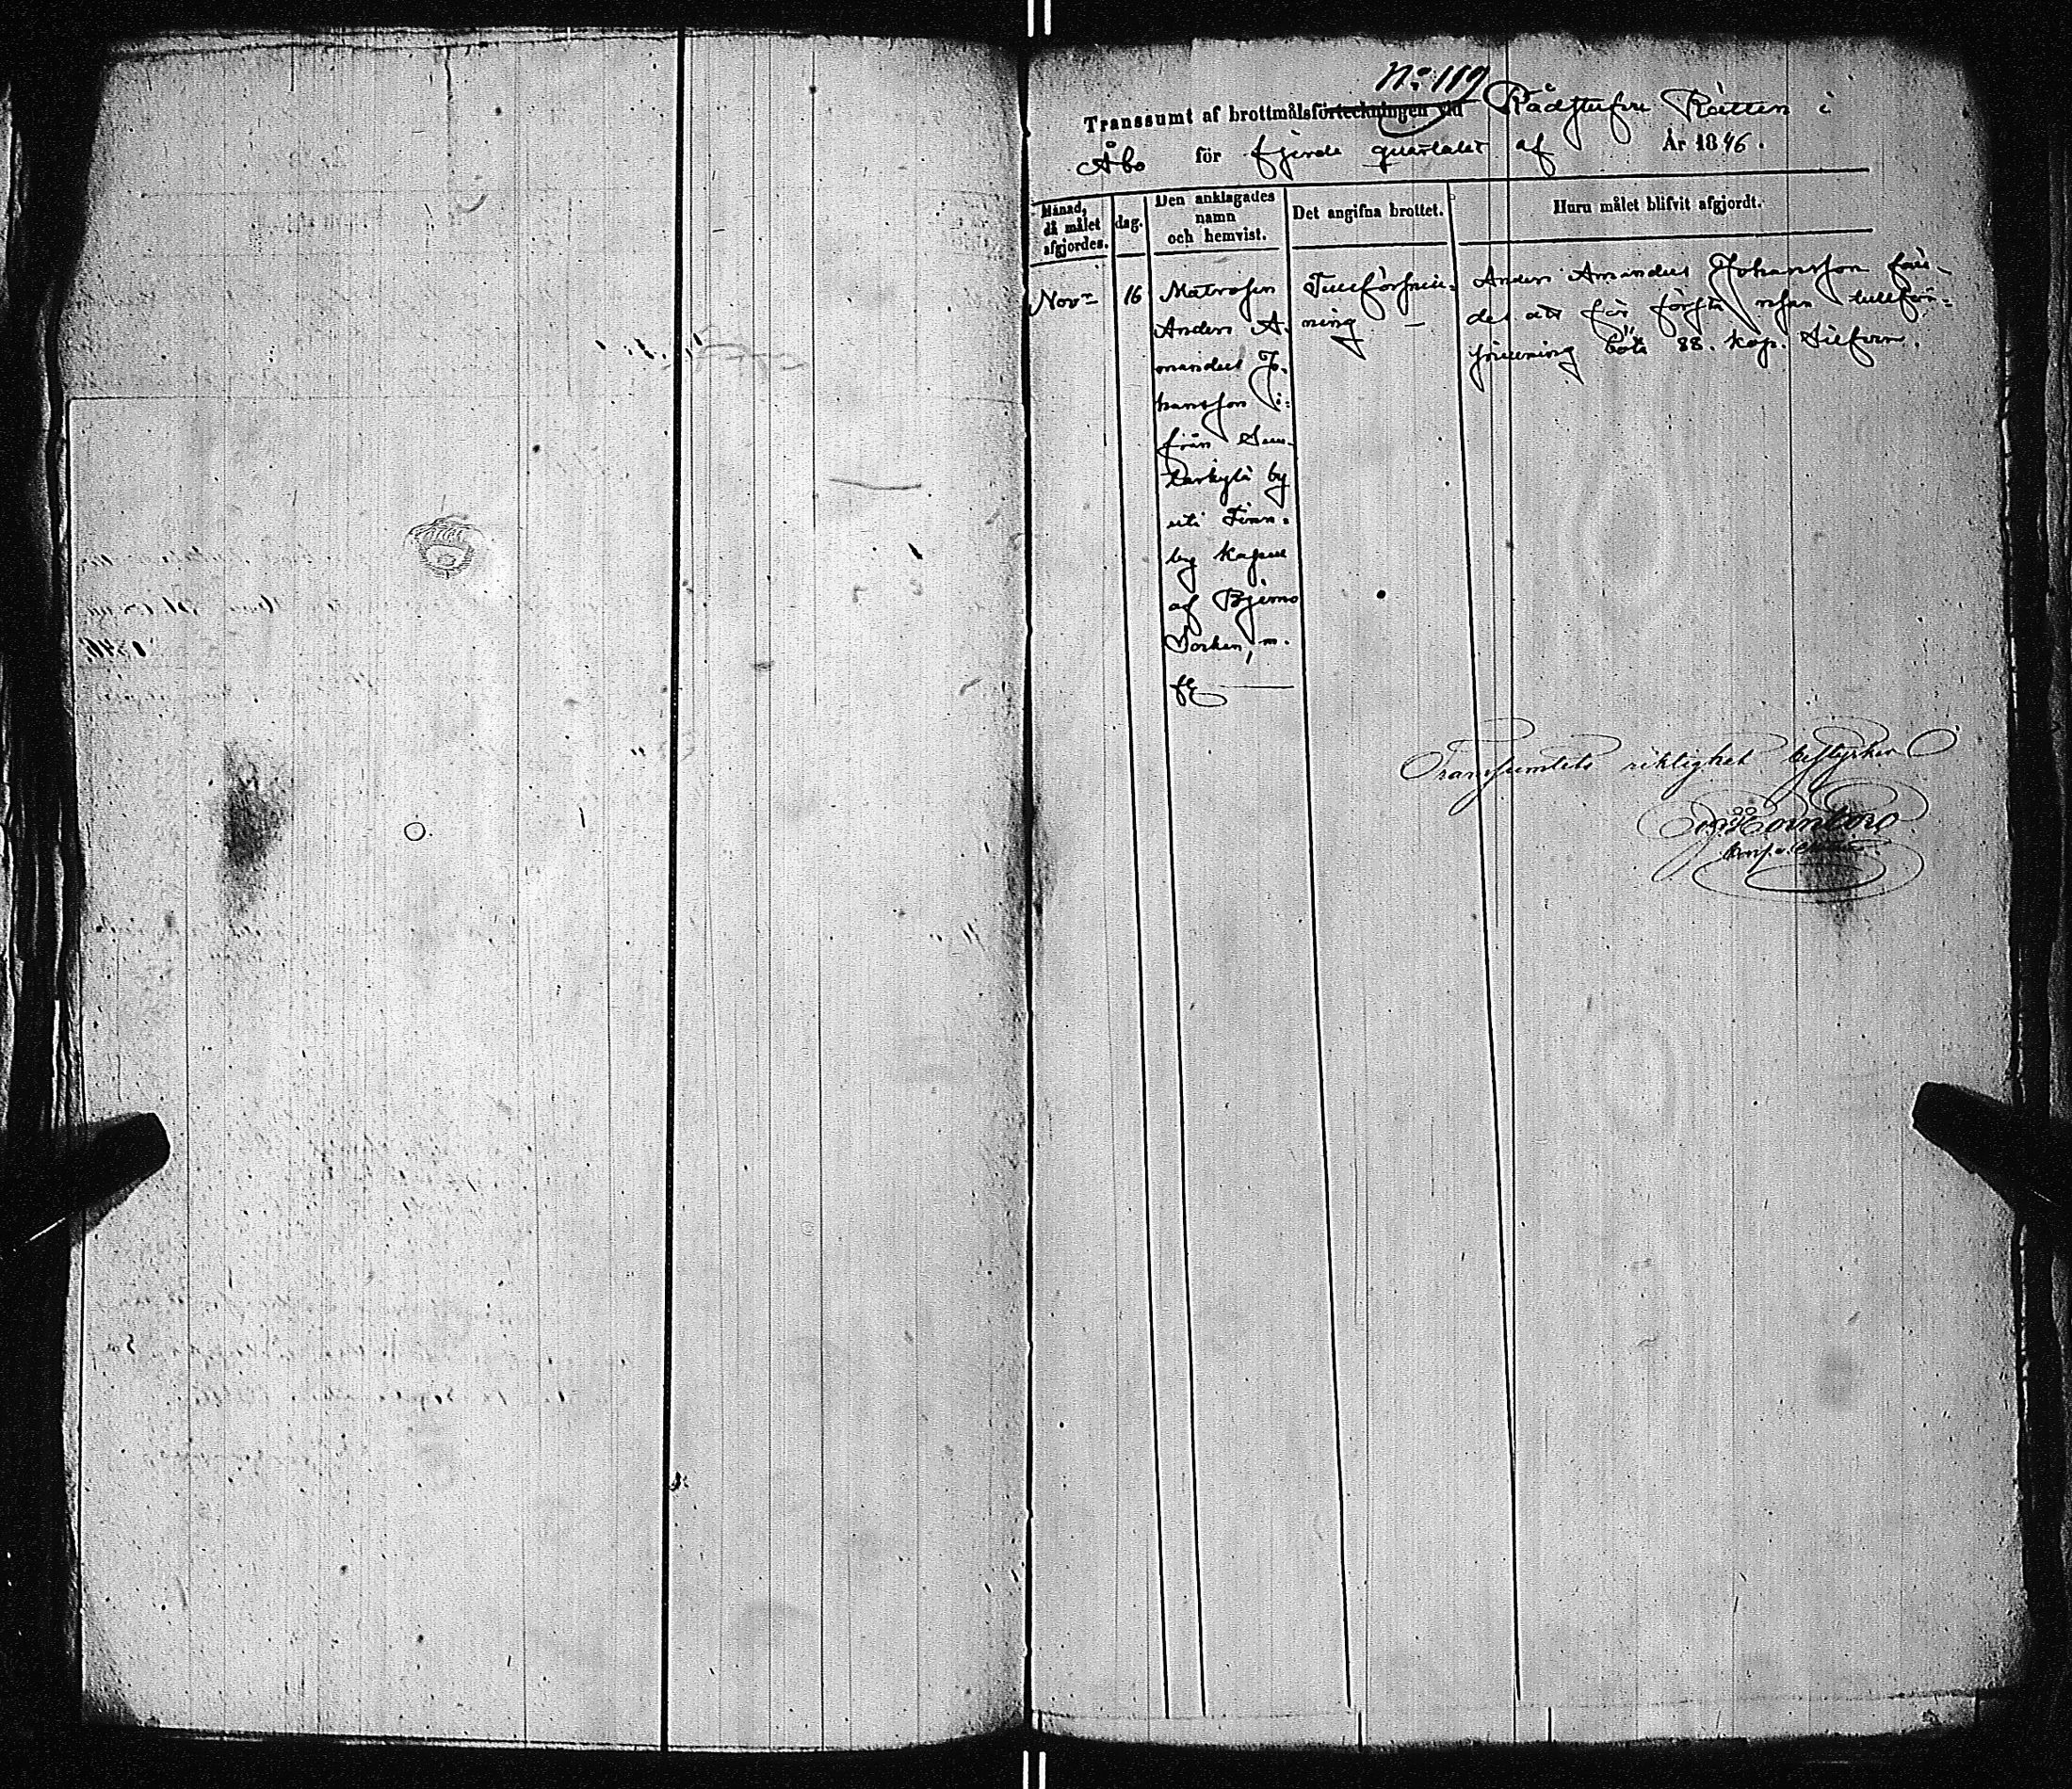 No 117
Transsumt af brottmålsförteckningen vid Rådstufvu Rätten i
Åbo för fjerde quartalet af År 1846.
Månad, då målet afgjordes.
dag.
Den anklagades namn och hemvist.
Det angifna brottet.
Huru målet blifvit afgjordt.
Novr 16
Matrosen
Anders A-
mandus Jo-
hansson i:
från
by
uti Finn-
by kapell
af Bjerno
Socken, m.
fl
Tullförsnill-
ning
Anders Amandus Johansson fäll-
des att för första resan tullför-
snillning böta 88. kop. Silfver.
Transumtets riktighet bestyrker